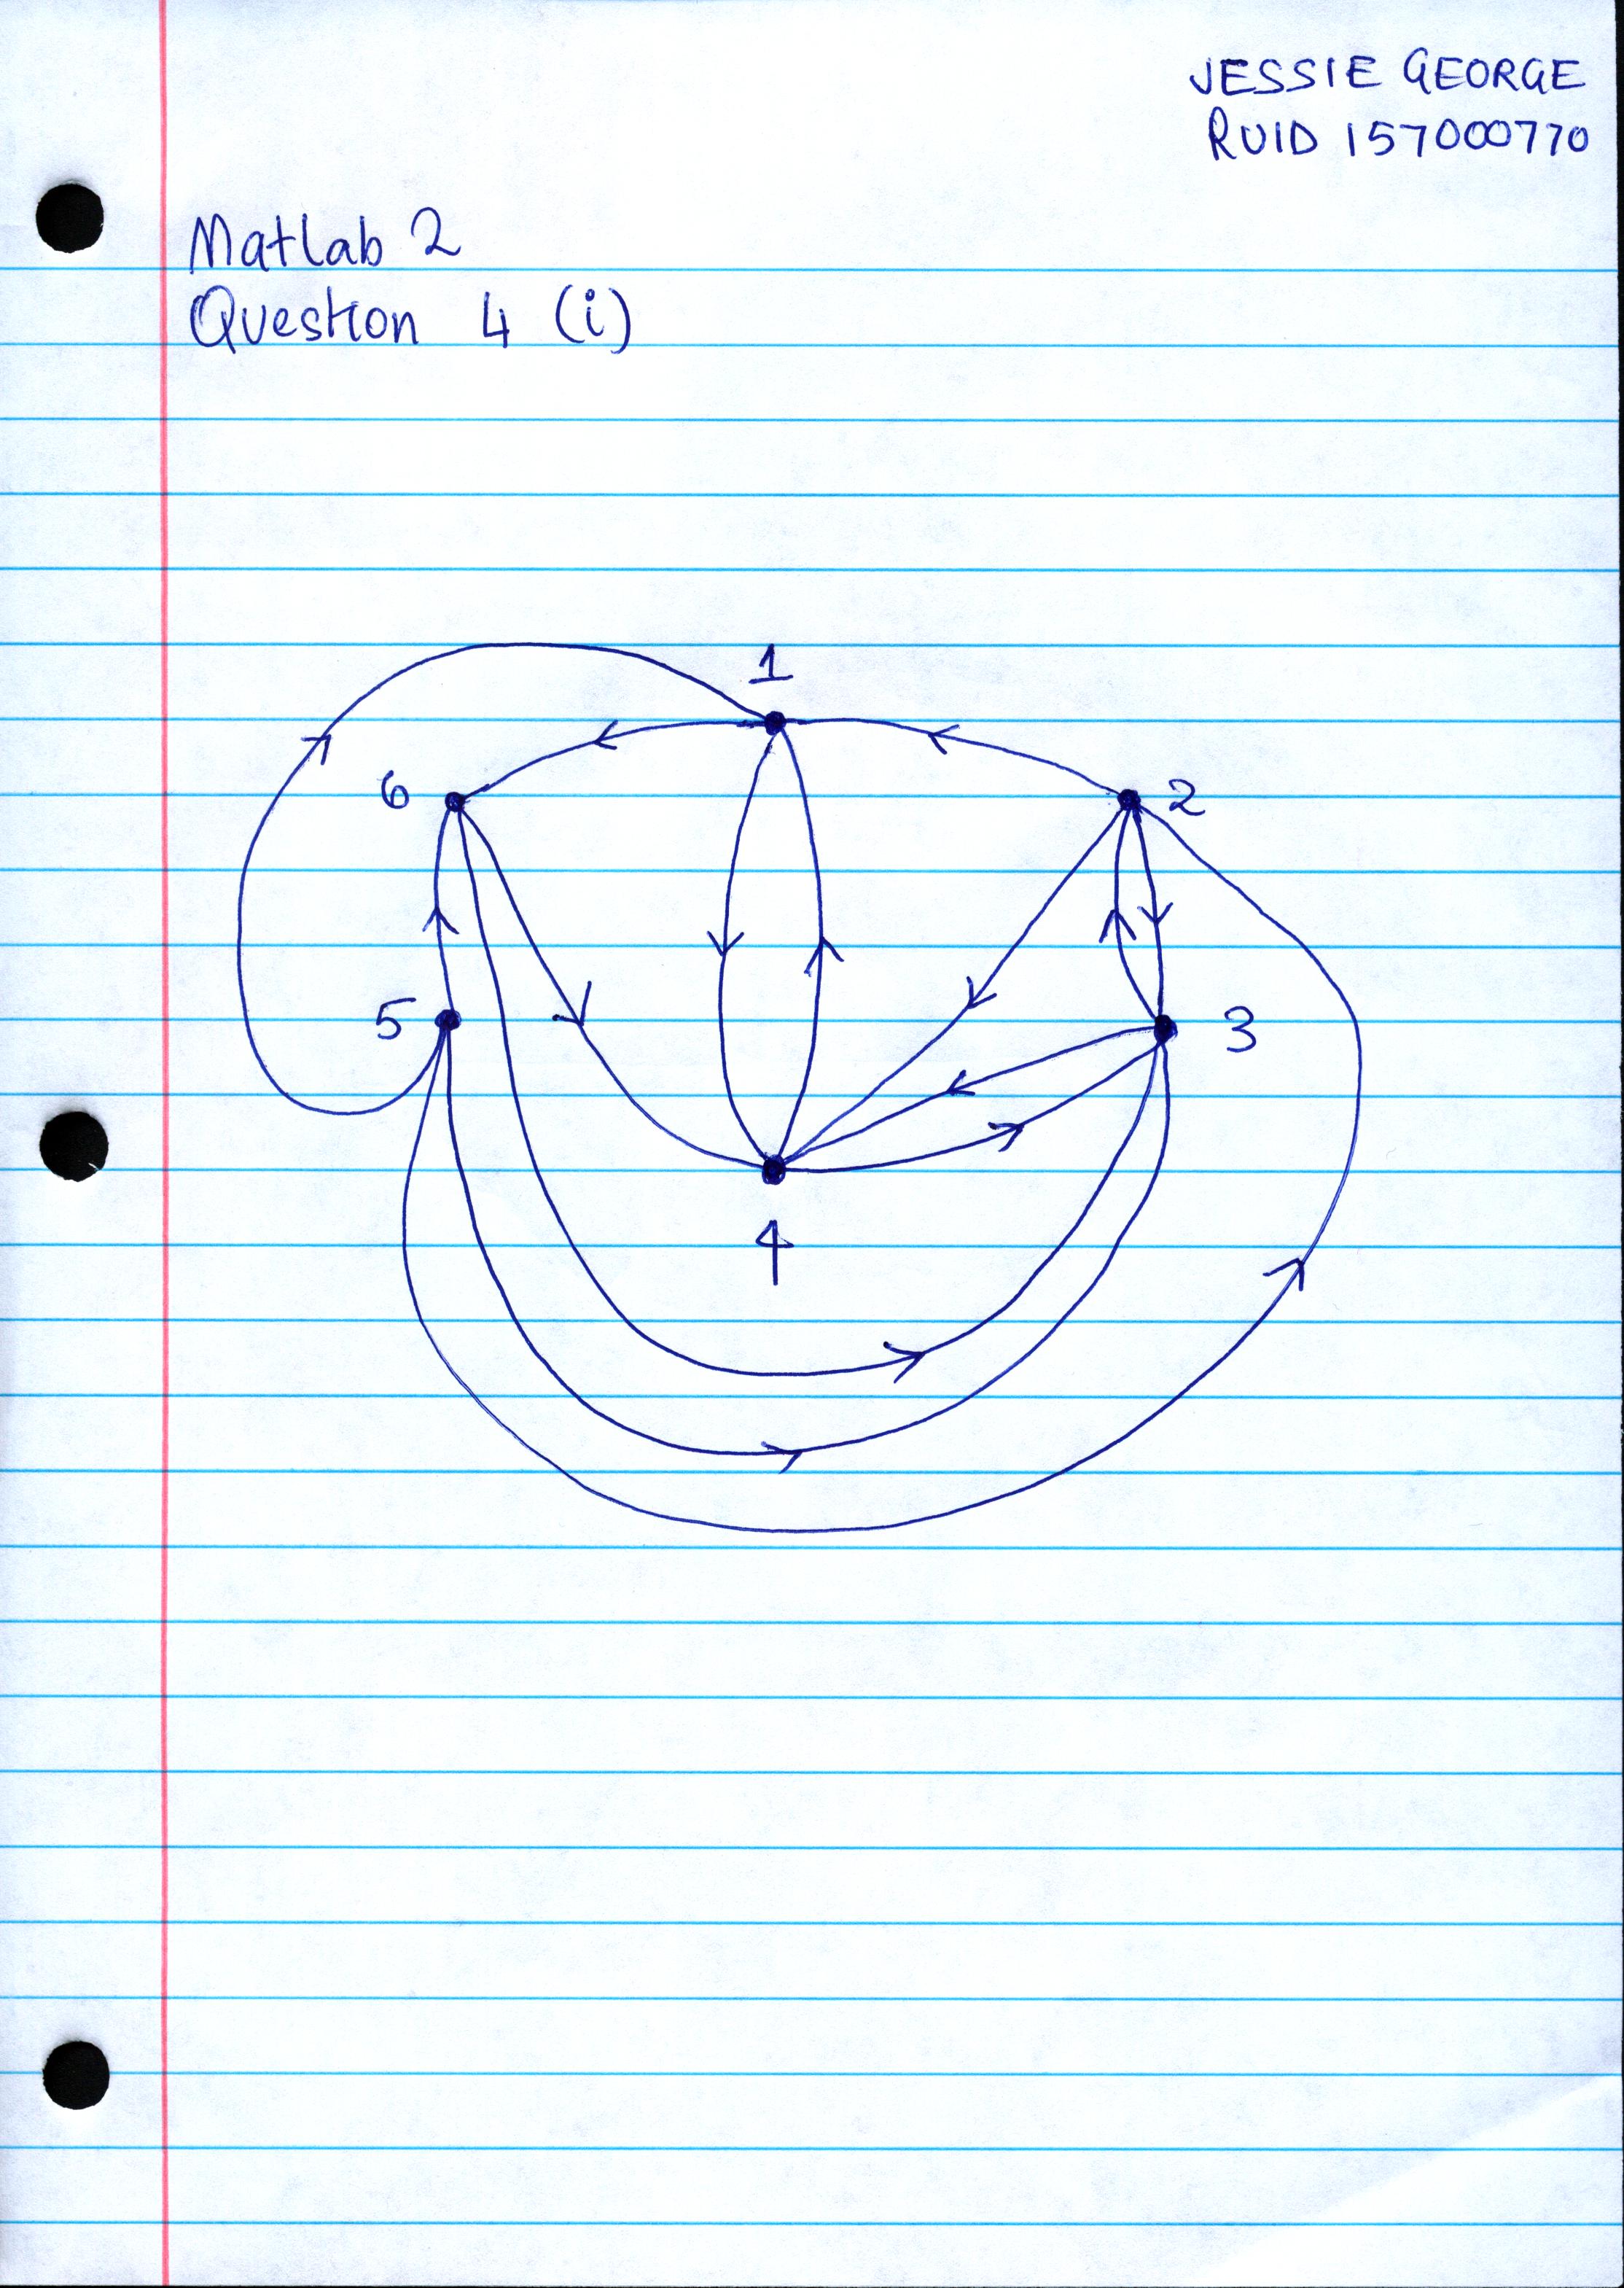 JESSIE GEORGE
RUID 157000770
Matlab 2
Question 4 (i)
1
6
2
5
3
4